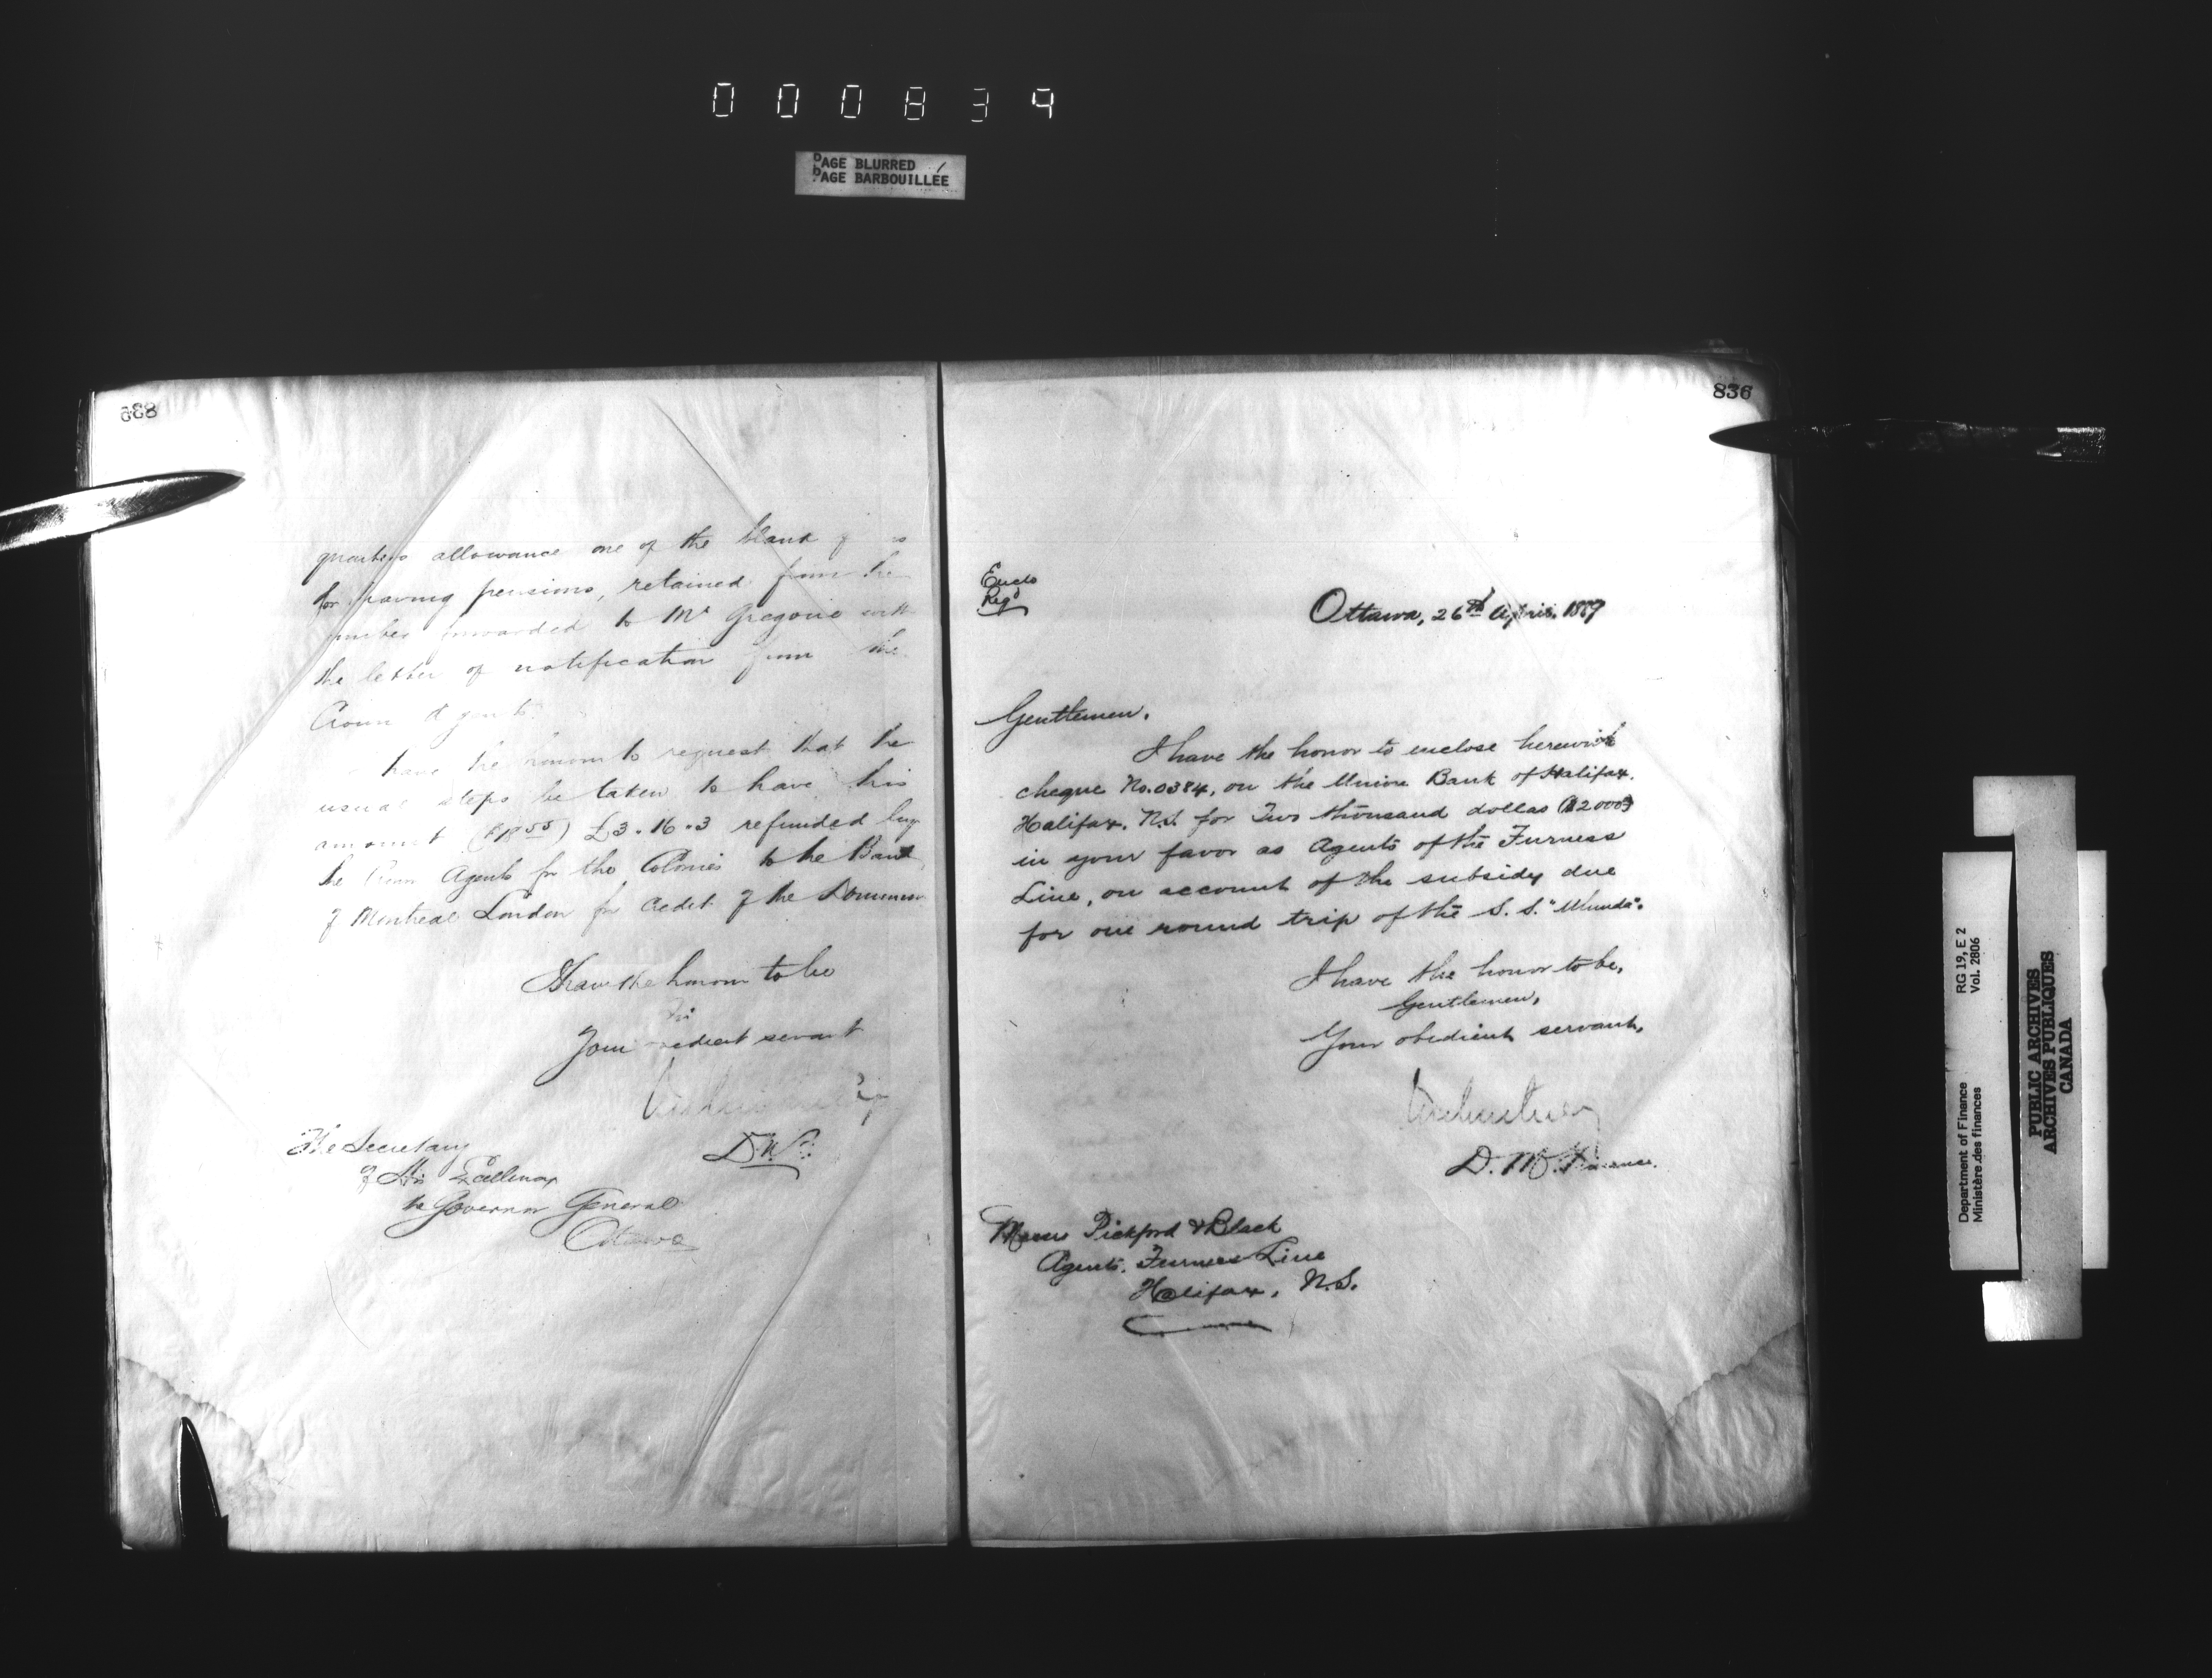 000834
PAGE BLURRED
PAGE BARBOUILLÉE
quarters allowance one of the blank
for having pensions, retained from the
number forwarded to Mr Gregoire with
the letter of notification from the
Crown Agents
have the honour to request that the
usual steps be taken to have this
amount ($18 55) £3.16.3 refunded by
the Crown Agents for the Colonies to the Bank
of Montreal London for credit of the Dominion
I have the honour to be
Sir
Your obedient servant
The Secretary
of His Excellency
the Governor General
Ottawa
836
Enclo
Regd
Ottawa, 26th April. 1889
Gentlemen.
I have the honor to enclose herewith
cheque No. 0384, on the Union Bank of Halifax.
Halifax. N.S. for Two thousand dollas ($2000)
in your favor as Agents of the Furness
Line, on account of the subsidy due
for one round trip of the S. S. "Ulunda".
I have the honor to be,
Gentlemen,
Your obedient servant,
D. M. Finance.
Messrs Pickford & Black
Agents. Furness Line
Halifax, N.S.
Department of Finance
Ministère des finances
RG 19, E 2
Vol. 2806
PUBLIC ARCHIVES
ARCHIVES PUBLIQUES
CANADA